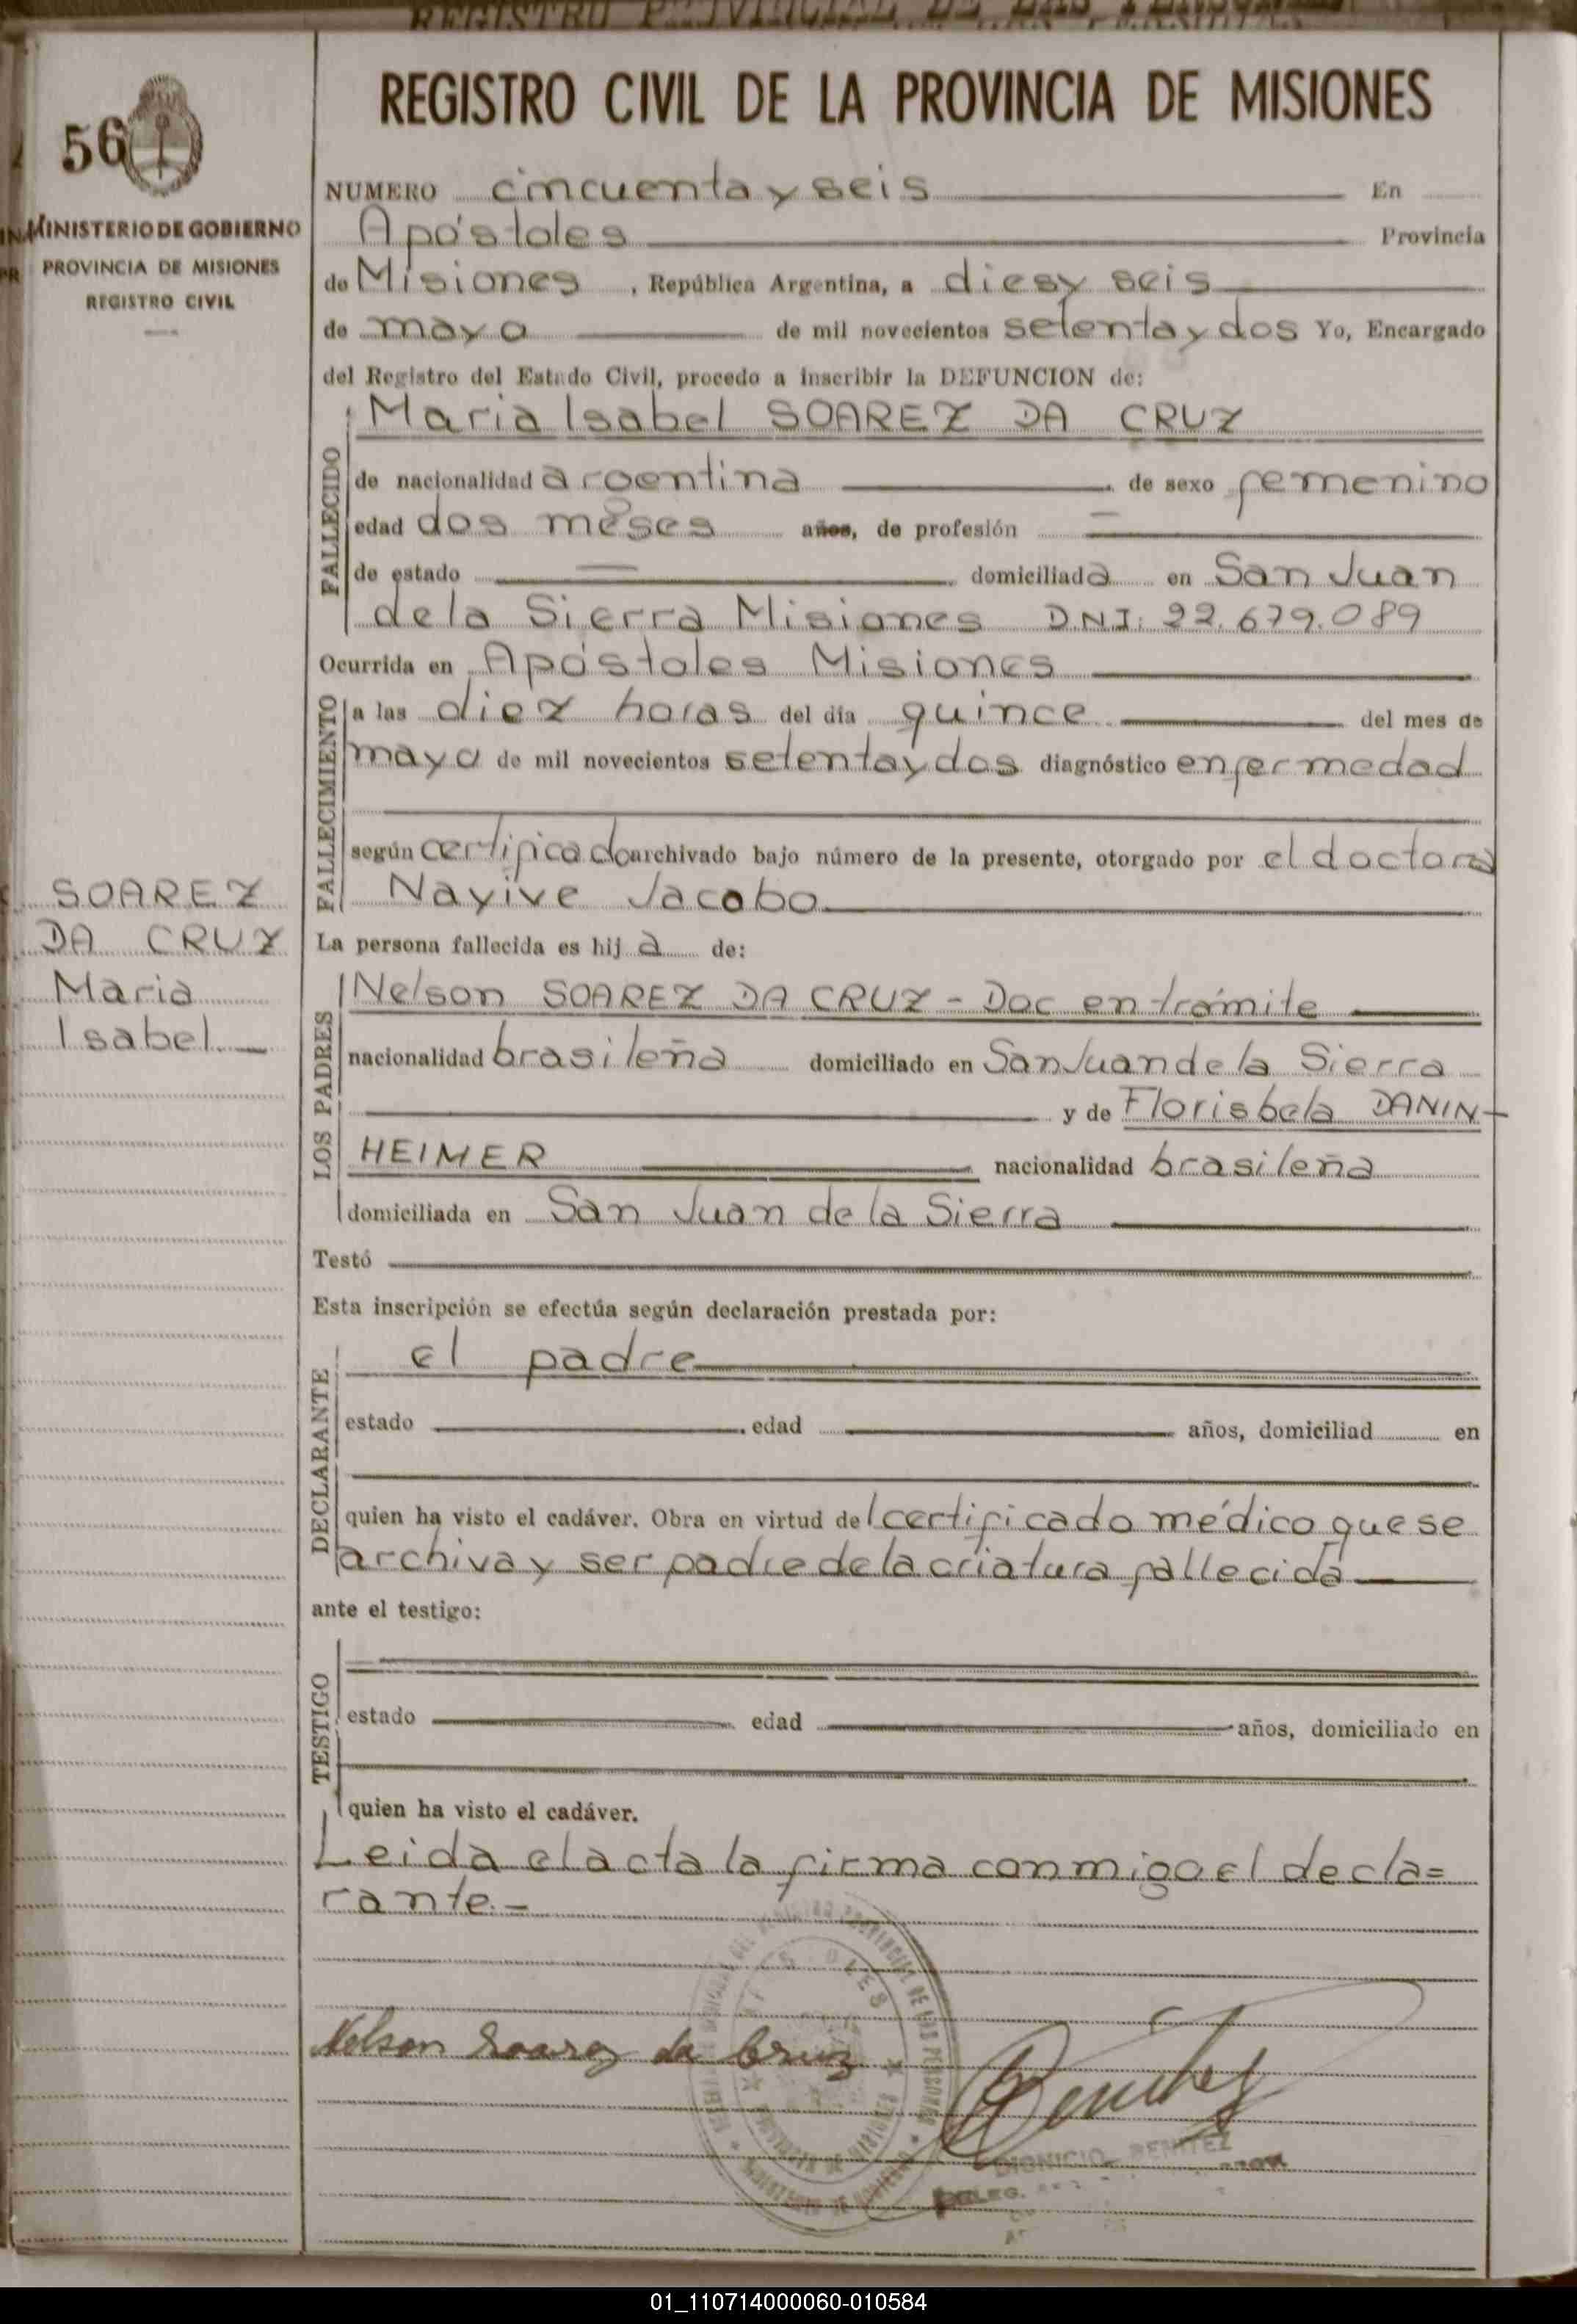 REGISTRO PROVINCIAL DE LAS PERSONAS
REGISTRO CIVIL DE LA PROVINCIA DE MISIONES
56
MINISTERIO DE GOBIERNO
PROVINCIA DE MISIONES
REGISTRO CIVIL
NUMERO cincuenta y seis En
Apóstoles Provincia
de Misiones, República Argentina, a diesy seis
de mayo de mil novecientos setenta y dos Yo, Encargado
del Registro del Estado Civil, procedo a inscribir la DEFUNCION de:
FALLECIDO
Maria Isabel SOAREZ DA CRUZ
de nacionalidad argentina de sexo femenino
edad dos meses años, de profesión —
de estado — domiciliada en San Juan
de la Sierra Misiones DNI: 22.679.089
Ocurrida en Apóstoles Misiones
FALLECIMIENTO
a las diez horas del día quince del mes de
mayo de mil novecientos setenta y dos diagnóstico enfermedad
según certificado archivado bajo número de la presente, otorgado por el doctora
Nayive Jacobo
SOAREZ
DA CRUZ
Maria
Isabel.—
La persona fallecida es hija de:
LOS PADRES
Nelson SOAREZ DA CRUZ - Doc en trámite
nacionalidad brasileña domiciliado en San Juan de la Sierra
y de Florisbela DANIN-
HEIMER nacionalidad brasileña
domiciliada en San Juan de la Sierra
Testó
Esta inscripción se efectúa según declaración prestada por:
DECLARANTE
el padre
estado edad años, domiciliad en
quien ha visto el cadáver. Obra en virtud del certificado médico que se
archiva y ser padre de la criatura fallecida
ante el testigo:
TESTIGO
estado edad años, domiciliado en
quien ha visto el cadáver.
Leida el acta la firma conmigo el decla=
rante.-
Nelson Soarez da Cruz
Benitez
DIONICIO BENITEZ
DELEG.
01_110714000060-010584